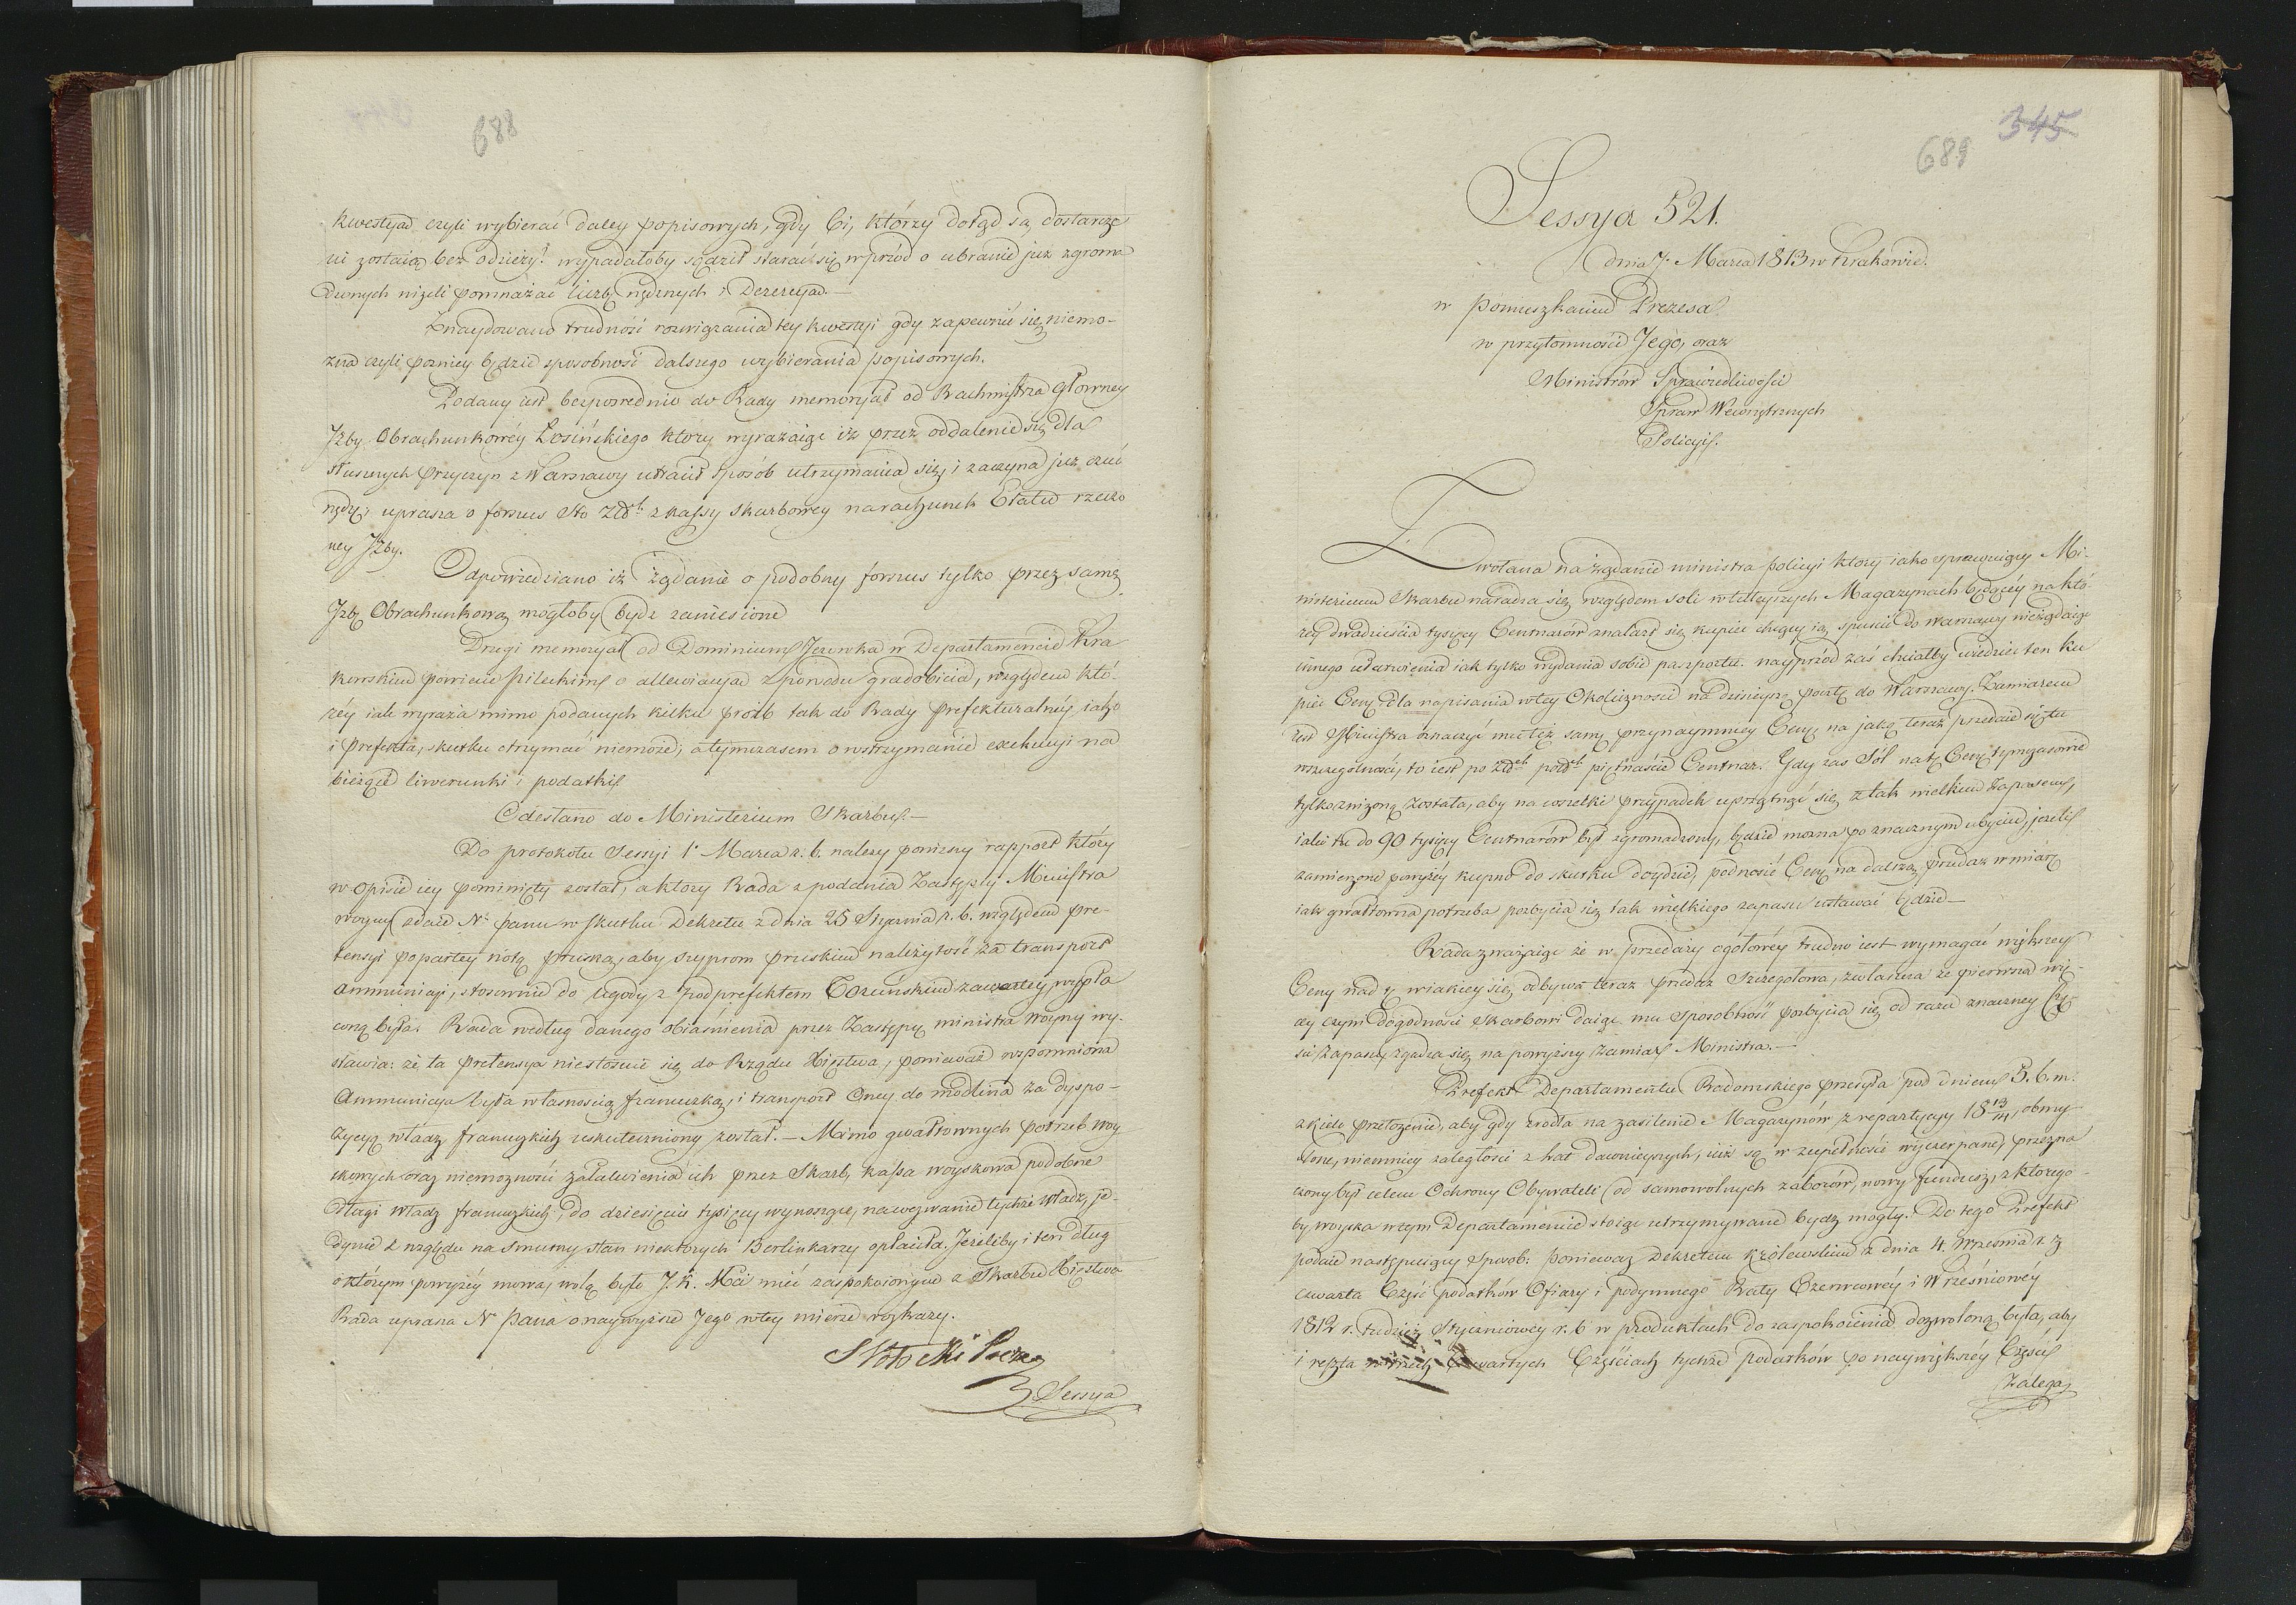 688
kwestya czyli wybierać daley popisowych, gdy Ci, którzy dotąd są dostarcze
ni zostaią bez odzieży? wypadałoby sądził starać się wprzód o ubranie już zgroma
dzonych niżeli pomnażać liczbę nędznych i Dezercyą.—
Znaydowano trudność rozwiązania tey kwestyi gdy zapewnić się niemo-
żna czyli pozniey będzie sposobność dalszego wybierania popisowych.
Podany iest bezpośrednio do Rady memoryał od Rachmistrza Główney
Jzby Obrachunkowéy Łosińskiego który wyrażaiąc iż przez oddalenie się dla
słusznych przyczyn z Warszawy utracił sposób utrzymania się, i zaczyna już czuć
nędzę; uprasza o forszus sto Złt. z kassy skarbowey na rachunek Etatu rzeczo
ney Jzby.
Odpowiedziano iż żądanie o podobny forszus tylko przez samą
Jzbę Obrachunkową mogłoby bydz zaniesione
Drugi memoryał od Dominium Jezowka w Departamencie Kra
kowskim powiecie Pileckim o allewiacyą z powodu gradobicia, względem któ-
réy iak wyraża mimo podanych kilku próźb tak do Rady Prefekturalnéy iako
i Prefekta, skutku otrzymać niemoże; a tymczasem o wstrzymanie exekucyi na
bieżące liwerunki i podatki.
Odesłano do Ministerium Skarbu.—
Do protokołu Sessyi 1° Marca r. b. należy ponizszy rapport który
w opisie iey pominięty został, a który Rada z podania Zastępcy Ministra
woyny zdaie Nu Panu w skutku Dekretu z dnia 25 Stycznia r. b. względem pre-
tensyi popartey notą pruską, aby szyprom pruskim należytość za transport
ammunicyi, stosownie do ugody z podprefektem Toruńskim zawartey, wypła
coną była. Rada według danego obiaśnienia przez Zastępcę ministra woyny wy-
stawia: że ta pretensya niestosuie się do Rządu Xięstwa, ponieważ wspomniona
Ammunicya była własnością francuzką, i transport Oney do Modlina za dyspo-
zycyą władz francuzkich uskuteczniony został.— Mimo gwałtownych potrzeb woy
skowych oraz niemożności załatwienia ich przez Skarb, kassa woyskowa podobne
długi władz francuzkich, do dziesięciu tysięcy wynoszące, na wezwanie tychże władz, je-
dynie z względu na smutny stan niektórych Berlinkarzy opłaciła. Jeżeliby i ten dług
o którym powyżéy mowa, wolą było J. K. Mci mieć zaspokoionym z Skarbu Xięstwa
Rada uprasza Nu Pana o naywyższe Jego wtey mierze rozkazy.
S Potocki Prezes
Sessya
345
689
Sessya 521.
dnia 7. Marca 1813 w Krakowie.
w Pomieszkaniu Prezesa
w przytomności Jego, oraz
Ministrów Sprawiedliwości
Spraw Wewnętrznych
Policyi.
Zwołana na żądanie ministra policyi który iako sprawuiący Mi-
nisterium Skarbu naradza się względem soli w tuteyszych Magazynach będącéy na któ-
rey dwadzieścia tysięcy Centnarów znalazł się kupiec chcący ią spuścić do Warszawy nieżądaiąc
innego ułatwienia iak tylko wydania sobie paszportu. nayprzód zaś chciałby wiedzieć ten ku
piec Cenę dla napisania wtey Okoliczności na dzisieyszą pocztę do Warszawy. Zamiarem
iest Ministra oznaczyć mu tęż samę przynaymniey Cenę, na jaką teraz przedaie się tu
w szczególności, to iest po Złt. piętnaście Centnar. Gdy zaś Sól na tę Cenę tymczasowie
tylko zniżoną została, aby na wszelki przypadek uprzątnąć się z tak wielkim Zapasem,
iaki tu do 90 tysięcy Centnarów był zgromadzony, będzie można po znacznym ubyciu, jeżeli
zamierzone powyżéy kupno do skutku doydzie, podnosić Cenę na dalszą przedaż w miarę
iak gwałtowna potrzeba pozbycia się tak wielkiego zapasu ustawać będzie—
Rada zważaiąc że w przedaży ogółowéy trudno iest wymagać większey
Ceny nad tę wiakiey się odbywa teraz przedaż Szczegółowa, zwłaszcza że pierwsza wię-
céy czyni dogodności Skarbowi daiąc mu sposobność pozbycia się od razu znaczney Czę-
ści Zapasu, zgadza się na powyższy zamiar Ministra.—
Prefekt Departamentu Radomskiego przesyła pod dniem 5. b. m.
z kielc przełożenie, aby gdy źrodła na zasilenie Magazynów z repartycyi 18 13/14 obmy
ślone, niemniey zaległości z lat dawnieyszych, iuż są w zupełności wyczerpane, przezna
czony był celem Ochrony Obywateli od samowolnych zaborów, nowy fundusz, z którego-
by woyska wtym Departamencie stoiące utrzymywane bydz mogły. Do tego Prefekt
podaie następuiący sposób: Ponieważ Dekretem Królewskim z dnia 4. Września r. z
czwarta Część podatków Ofiary i podymnego Raty Czerwcowéy i Wrześniowéy
1812 r. tudzież Styczniowey r. b w produktach do zaspokoienia dozwoloną była, aby
i reszta w trzech Czwartych Częściach tychże podatków po największey Części
Zalega